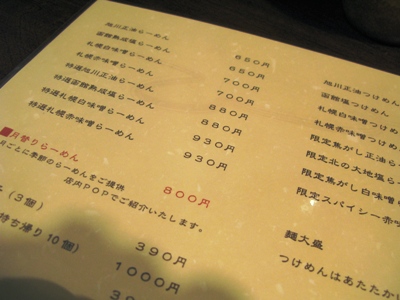 旭川正油らーめん 650円
函館熟成塩らーめん 650円
札幌白味噌らーめん 700円
札幌赤味噌らーめん 700円
特選旭川正油らーめん 880円
特選函館熟成塩らーめん 880円
特選札幌白味噌らーめん 930円
特選札幌赤味噌らーめん 930円
■月替りらーめん 800円
月ごとに季節のらーめんをご提供
店内POPでご紹介いたします。
(3個) 390円
持ち帰り10個) 1000円
旭川正油つけめん
函館塩つけめん
札幌白味噌つけめ
札幌赤味噌つけ
限定焦がし正油ら
限定北の大地塩ら
限定焦がし白味噌
限定スパイシー赤味
麺大盛
つけめんはあたたか